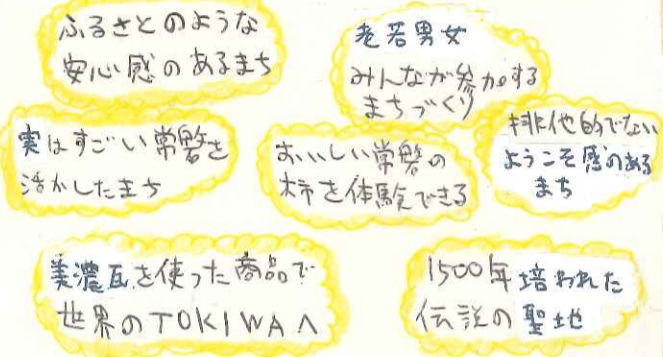 ふるさとのような
安心感のあるまち
老若男女
みんなが参加する
まちづくり
実はすごい常磐を
活かしたまち
おいしい常磐の
柿を体験できる
排他的でない
ようこそ感のある
まち
美濃瓦を使った商品で
世界のTOKIWAへ
1500年培われた
伝説の聖地